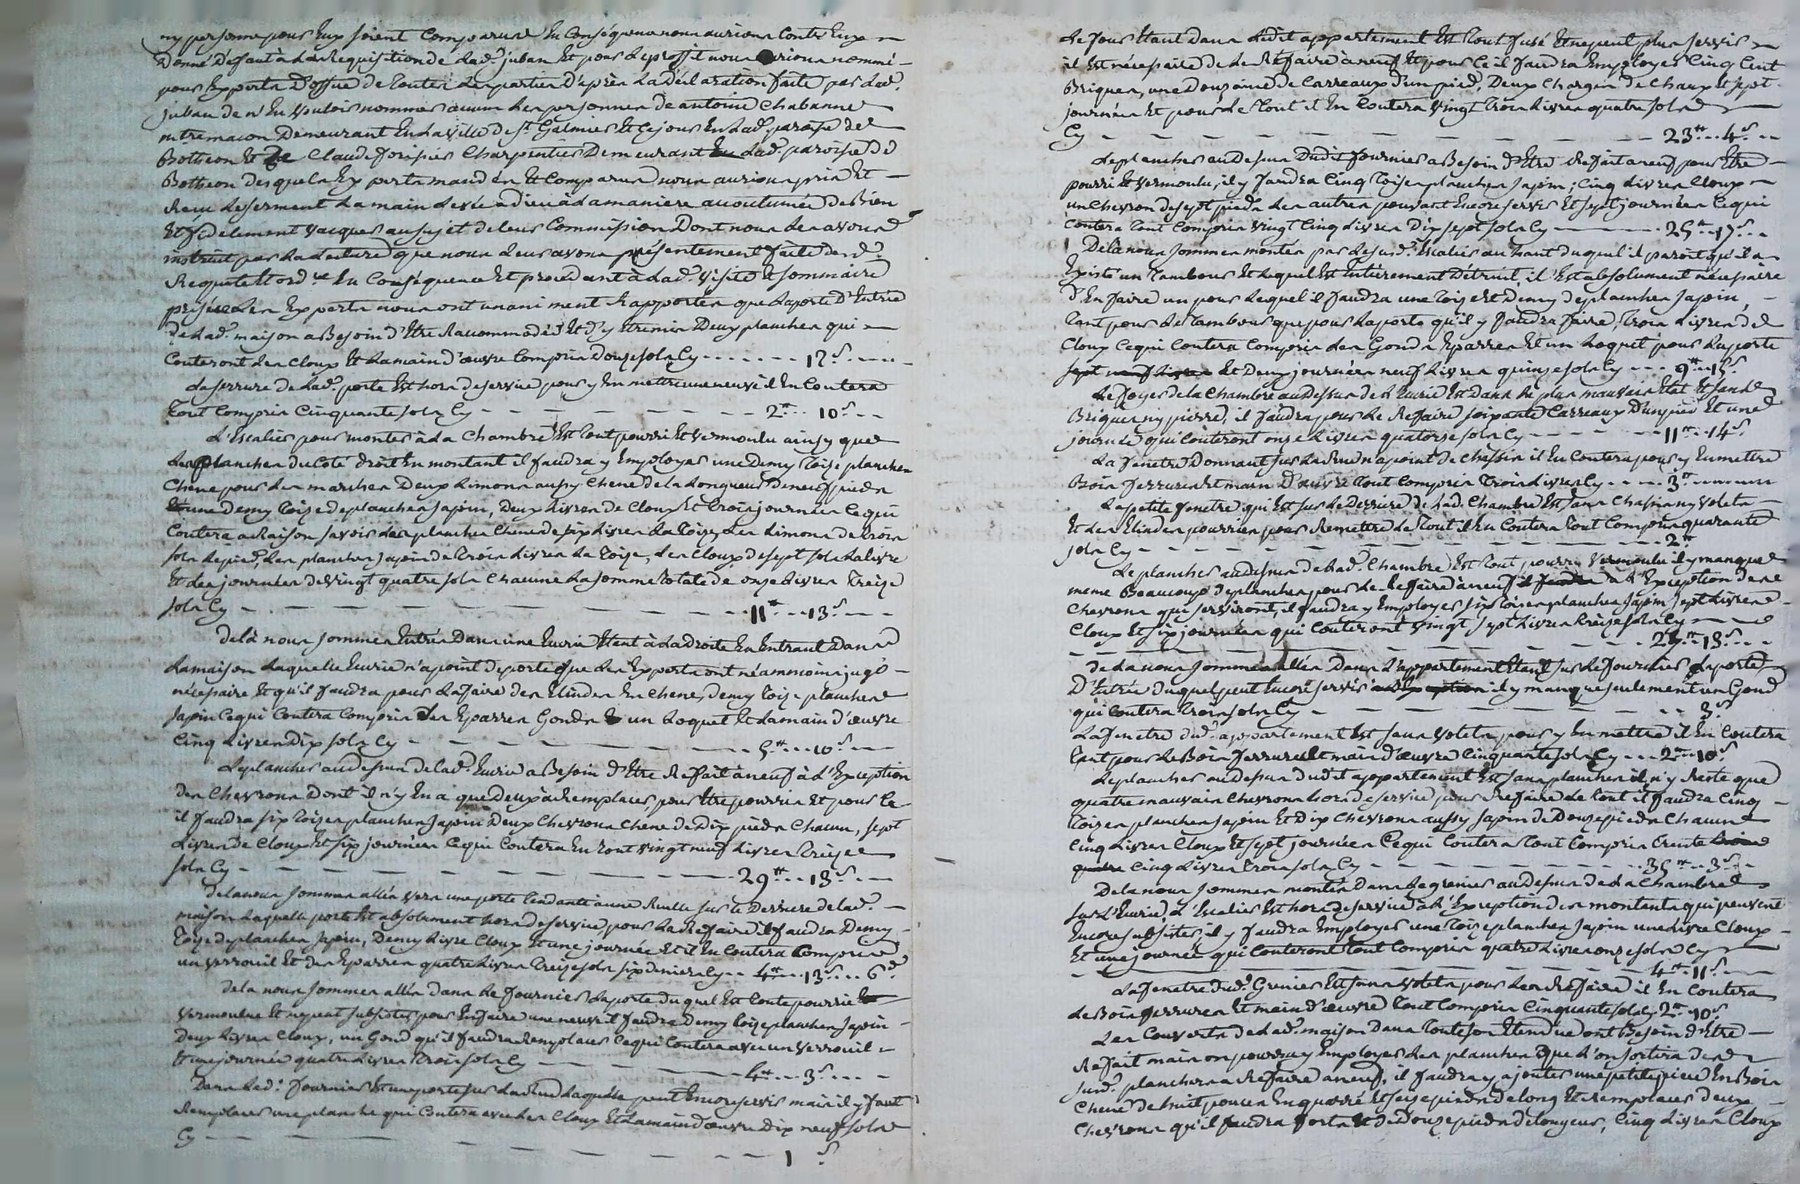 ny personne pour Eux soient Comparus En Conséquence nous aurions Contr'Eux
Donné défaut à La Requisition de Lad.e juban Et pour Le proffit nous aurions nommé
pour Experts D'office de toutes Les parties D'après La Déclaration faite par Lad.e
juban de n'En vouloir nommer aucun Les personnes de antoine Chabanne
mtre maçon Demeurant En La ville de St Galmier Et Ce jour En Lad.e paroisse de
Botheon Et de Claude forisier Charpentier Demeurant En Lad.e paroisse de
Botheon desquels Experts mandés Et Comparus nous aurions pris Et
Reçu Le serment La main Levée à Dieu à La maniere accoutumée De Bien
Et fidelement vacquer au sujet de leur Commission Dont nous Les avons
instruit par La Lecture que nous Leur avons présentement faite desd.
Requette Et ord.ce En Conséquence Et procedant à Lad.e visite Et sommaire
prisée Les Experts nous ont unaniment Rapportés que La porte D'Entrée
de Lad.e maison a Besoin d'Etre Racommodée Et d'y Etre mis Deux planches qui
Couteront Les Cloux Et La main d'œuvre Compris Douze sols Cy - - - 12 s
La serrure de Lad.e porte Est hors de service pour y En mettre une neuve il En Coutera
tout Compris Cinquante sols Cy - - - 2 tt 10 s
L'Escalier pour monter à La Chambre Est tout pourri Et vermoulu ainsy que
Les planches du Coté droit En montant il faudra y Employer une Demy toise planches
Chene pour Les marches Deux Limons aussy Chene de La Longueur De neuf pieds
une Demy toise de planches sapin, Deux Livres de Cloux Et trois journées Ce qui
Coutera a Raison savoir Les planches Chene de six Livres La toise, Les Limons de trois
sols Le pied, Les planches sapin de trois Livres La toise, Les Cloux de sept sols La Livre
Et Les journées de vingt quatre sols Chacune La somme totale de onze Livres treize
sols Cy - - - 11 tt 13 s
De Là nous sommes Entrés Dans une Ecurie Etant à La droite En Entrant Dans
La maison Laquelle Ecurie n'a point de porte que Les Experts ont néammoins jugé
nécessaire Et qu'il faudra pour La faire Des Elindes En chene, demy toise planches
sapin Ce qui Coutera Compris Les Eparres Gonds Et un Loquet Et La main d'œuvre
Cinq Livres Dix sols Cy - - - 5 tt 10 s
Le plancher au dessus de Lad.e Ecurie a Besoin d'Etre Refait à neuf à L'Exception
des Chevrons Dont il n'y En a que Deux à Remplacer pour Etre pourris Et pour Ce
il faudra six toises planches sapin Deux Chevrons Chene De Dix pieds Chacun, sept
Livres de Cloux Et six journées Ce qui Coutera En tout vingt neuf Livres treize
sols Cy - - - 29 tt 13 s
De La nous sommes allés vers une porte tendante a une Ruelle sur Le Derriere de Lad.e
maison Laquelle porte Est absolument hors de service, pour La Refaire il faudra Demy
toise de planches sapin, Demy Livre Cloux Et une journée Et il En Coutera Compris
un verrouil Et des Eparres quatre Livres treize sols six deniers Cy - - 4 tt 13 s 6 d
De La nous sommes allés dans Le fournier La porte duquel Est toute pourrie
vermoulue Et ne peut subsister, pour En faire une neuve il faudra Demy toise planches sapin
Deux Livres Cloux, un Gond qu'il faudra Remplacer Ce qui Coutera avec un verrouil
Et une journée quatre Livres trois sols Cy - - - 4 tt 3 s
Dans Led.t fournier Est une porte sur La Rue Laquelle peut Encore servir mais il y faut
Remplacer une planche qui Coutera avec Les Cloux Et La main d'œuvre Dix neuf sols
Cy - - - 1 s
Le four Etant Dans Ledit appartement Est tout fusé Et ne peut plus servir
il Est nécessaire de Le Refaire à neuf Et pour Ce il faudra Employer Cinq Cent
Briques, une Douzaine de Carreaux d'un pied, Deux Charges de Chaux Et sept
journées Et pour Le tout il En Coutera vingt trois Livres quatre sols
Cy - - - 23 tt 4 s
Le plancher au Dessus Dudit fournier a Besoin d'Etre Refait a neuf pour Etre
pourri Et vermoulu, il y faudra Cinq toises planches sapin, Cinq Livres Cloux
un Chevron de sept pieds Les autres pouvant Encore servir Et sept journées Ce qui
Coutera tout Compris vingt Cinq Livres Dix sept sols Cy - - - 25 tt 17 s
De Là nous sommes montés par Le sus.d Escalier au haut duquel il paroit qu'il a
Existé un tambour Et Lequel Est Entierement Détruit, il Est absolument nécessaire
d'En faire un pour Lequel il faudra une toise Et Demy de planches sapin
tant pour Le tambour que pour La porte qu'il y faudra faire, trois Livres de
Cloux Ce qui Coutera Compris Les Gonds Eparres Et un Loquet pour La porte
Et Demy journée neuf Livres quinze sols Cy - - - 9 tt 15 s
Le foyer de La Chambre au Dessus de L'Ecurie Est Dans Le plus mauvais Etat Et sans
Briques ny pierres, il faudra pour Le Refaire soixante Carreaux D'un pied Et une
journée qui Couteront onze Livres quatorze sols Cy - - - 11 tt 14 s
La fenetre Donnant sur La Rue n'a point de Chassis il En Coutera pour y En mettre
Bois ferrures Et main D'œuvre tout Compris trois Livres Cy - - - 3 tt
La petite fenetre qui Est sur Le Derriere de Lad.e Chambre Est sans Chassis ny volets
Et Les Elindes pourries pour Remettre Le tout il En Coutera tout Compris quarante
sols Cy - - - 2 tt
Le plancher au dessus de Lad.e Chambre Est tout pourri vermoulu il y manque
meme Beaucoup de planches pour Le Refaire à neuf à L'Exception des
Chevrons qui serviront, il faudra y Employer six toises planches sapin sept Livres
Cloux Et six journées qui Couteront vingt sept Livres treize sols Cy
- - - 27 tt 13 s
De La nous sommes allés Dans L'appartement Etant sur Le fournier La porte
D'Entrée duquel peut Encore servir il y manque seulement un Gond
qui Coutera trois sols Cy - - - 3 s
La fenetre dud.t appartement Est sans volets pour y En mettre il En Coutera
tant pour Le Bois ferrure Et main d'œuvre Cinquante sols Cy - - - 2 tt 10 s
Le plancher au dessus dudit appartement Est sans planches il n'y Reste que
quatre mauvais Chevrons hors de service pour Refaire Le tout il faudra Cinq
toises planches sapin Et Dix Chevrons aussy sapin de Douze pieds Chacun
Cinq Livres Cloux Et sept journées Ce qui Coutera tout Compris trente
Cinq Livres trois sols Cy - - - 35 tt 3 s
De La nous sommes montés dans Le grenier au dessus de La Chambre
sur L'Ecurie, L'Escalier Est hors de service à L'Exception des montants qui peuvent
Encore subsister, il y faudra Employer une toise planches sapin une Livre Cloux
Et une journée qui Couteront tout Compris quatre Livres onze sols Cy
- - - 4 tt 11 s
La fenetre dud.t Grenier Est sans volets pour Les Refaire il En Coutera
Le Bois ferrures Et main d'œuvre tout Compris Cinquante sols Cy 2 tt 10 s
Les Couverts de Lad.e maison Dans toute son Etendue ont Besoin d'Etre
Refait mais on pourra y Employer Les planches que L'on sortira desd.
susd. planchers a Refaire a neuf, il faudra y ajouter une petite piece En Bois
Chene de huit pouces En quarré Et seize pieds de long Et Remplacer deux
Chevrons qu'il faudra forts Et de Douze pieds de Longueur, Cinq Livres Cloux